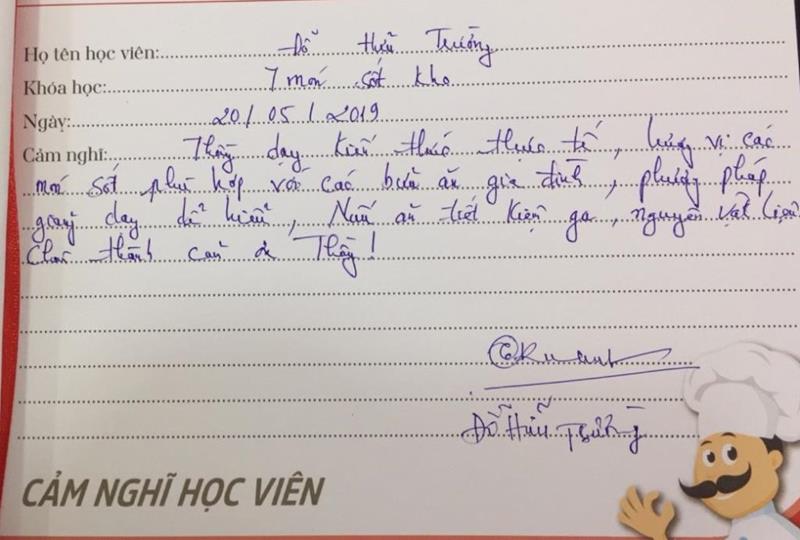 Họ tên học viên: Đỗ Hữu Trường
Khóa học: 7 món sốt kho
Ngày: 20/05/2019
Cảm nghĩ: Thầy dạy kiến thức thực tế, hương vị các
món sốt phù hợp với các bữa ăn gia đình, phương pháp
giảng dạy dễ hiểu, Nấu ăn tiết kiệm ga, nguyên vật liệu
Chân thành cảm ơn Thầy!
Đỗ Hữu Trường
CẢM NGHĨ HỌC VIÊN